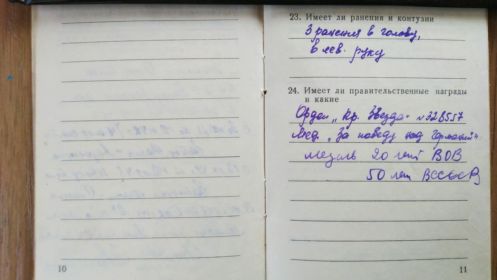 23. Имеет ли ранения и контузии
3 ранения в голову,
в лев. руку
24. Имеет ли правительственные награды
и какие
Орден „Кр. Звезда" №328557
Мед. „За победу над Германией"
медаль 20 лет ВОВ
50 лет ВССССР
10
11